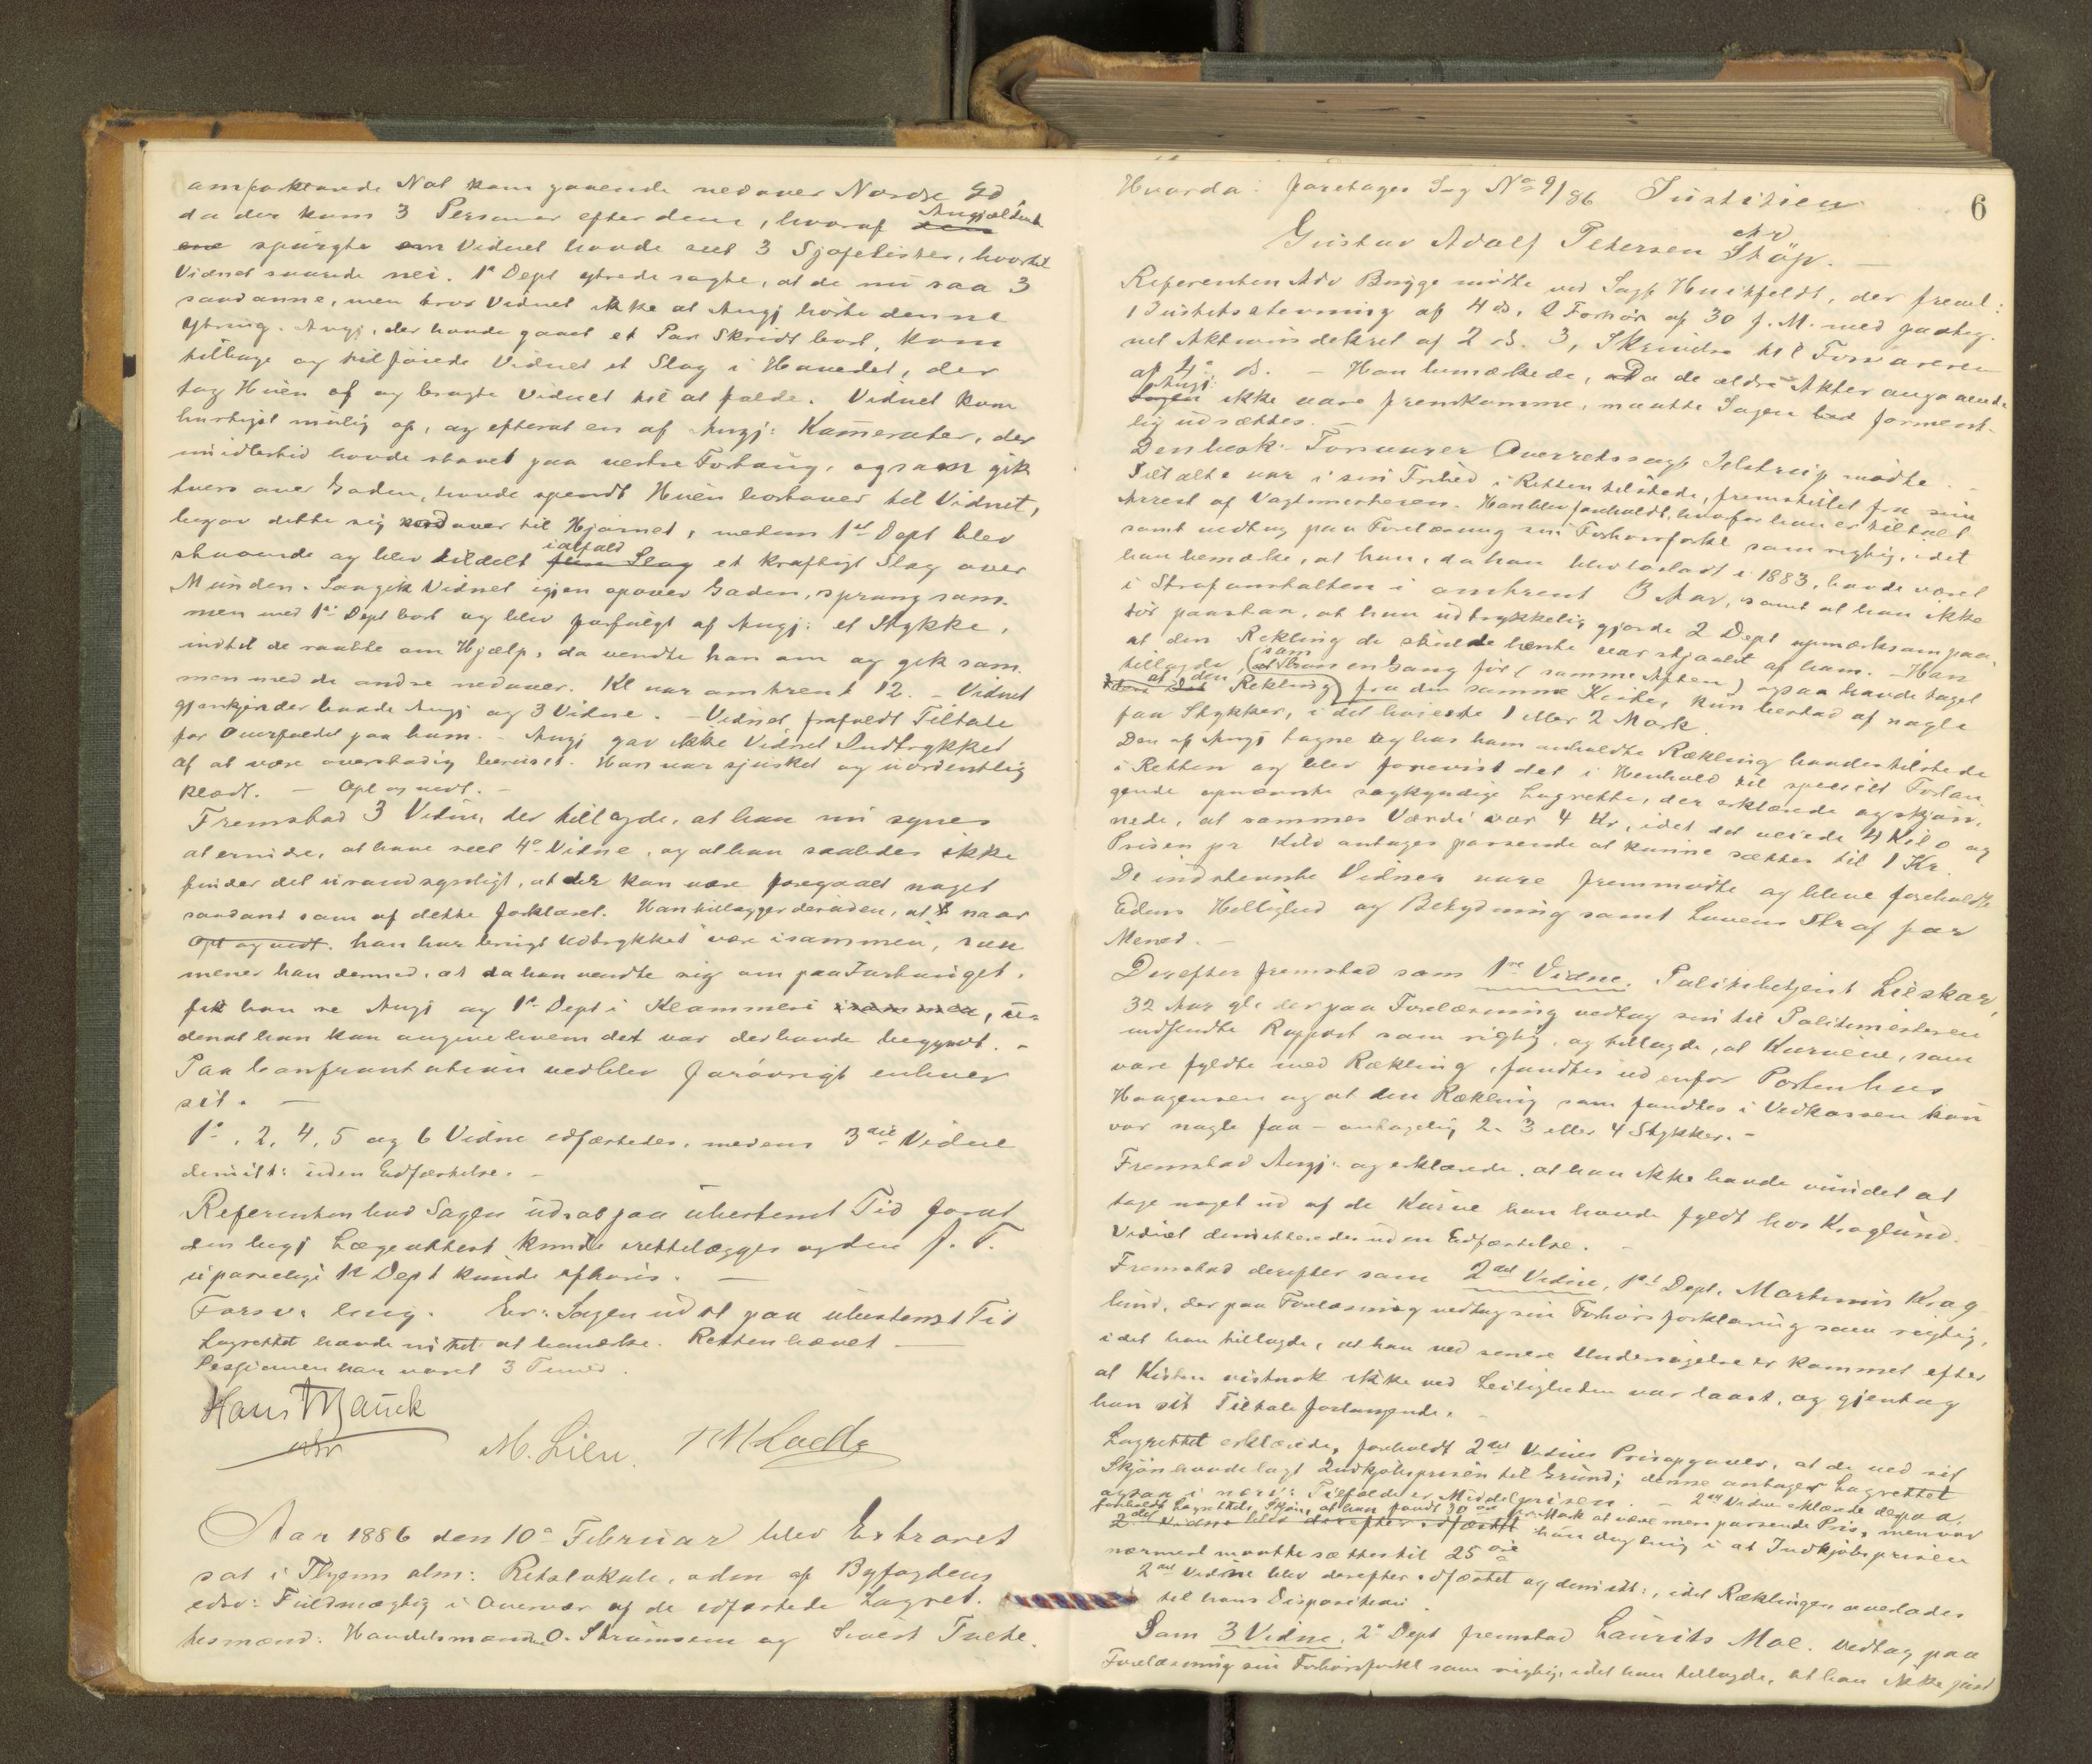 omforklarede Nat kom gaaende nedover Nordre Gd
da der kom 3 Personer efter dem, hvoraf Angjældende
spurgte om Vidnet havde seet 3 Sjofelister, hvortil
Vidnet svarede nei. 1ª Dept ytrede sagte, at de nu saa 3
saadanne, men tror Vidnet ikke at Angj hørte denne
Ytring. Angj, der havde gaaet et Par Skridt bort, kom
tilbage og tilføiede Vidnet et Slag i Hovedet, der
tog Huen af og bragte Vidnet til at falde. Vidnet kom
hurtigst mulig op, og efterat en af Angj: Kamerater, der
imidlertid havde staaet paa vestre Fortaug, ogsaa gik
tvers over Gaden, havde spendt Huen bortover til Vidnet,
begav dette sig over til Hjørnet, medens 1st Dept blev
staaende og blev tildelt ialfald et kraftigt Slag over
Munden. Saa gik Vidnet igjen opover Gaden, sprang sam-
men med 1ª Dept bort og blev forfulgt af Angj: et Stykke,
indtil de raabte om Hjælp, da vendte han om og gik sam
men med de andre nedover. Kl var omtrent 12. – Vidnet
gjenkjender baade Angj og 3 Vidne. – Vidnet frafaldt Tiltale
for Overfaldet paa ham. – Angj gav ikke Vidnet Indtrykket
af at være overstadig beruset. Han var sjusket og uordentlig
klædt. – Opl og vedt. –
Fremstod 3 Vidne, der tillagde, at han nu synes
at erindre, at have seet 4º Vidne, og at han saaledes ikke
finder det usandsynligt, at der kan være foregaaet noget
saadant som af dette forklaret. Han tillægger desuden, at naar
Opl og vedt. han har brugt Udtrykket være isammen, saa
mener han dermed, at da han vendte sig om paa Fortauget,
fik han se Angj og 1ª Dept i Klammeri, u-
denat han kan angive hvem det var der havde begyndt. –
Paa Confrontation vedblev forøvrigt enhver
sit. –
1º, 2, 4, 5 og 6 Vidne edfæstedes, medens 3die Vidne
demitt: uden Edfæstelse. –
Referenten bad Sagen udsat paa ubestemt Tid forat
den begj Lægeattest kunde irettelægges og den f. T.
upasselige 12 Dept kunde afhøres. –
Forsv: enig. Er: Sagen uds paa ubestemt Tid
Lagrettet havde intet at bemærke. Retten hævet
Sessionen har varet 3 Timer.
Hans Mauck
M. Lien.
Aar 1886 den 10º Februar blev Extraret
sat i Thjems alm: Retslokale, aden af Byfogdens
edsv: Fuldmægtig i Overvær af de edfæstede Lagret-
tesmænd: Handelsmænd O. Strømsem og Sivert Tvete.
6
Hvorda: foretoges Sag Nº 9/86 Justitien
ctr
Gustav Adolf Petersen Støp. –
Referenten Adv Brygge mødte ved Sagf Huitfeldt, der freml:
1 Justitsstevning af 4 ds, 2 Forhør af 30 f. M. med paateg-
net Aktionsdekret af 2 ds. 3, Skrivelse til Forsvareren
af 4 ds. – Han bemærkede, Da de ældre Akter angaaende
Angj: ikke vare fremkomne, maatte Sagen forment-
lig udsættes. –
Den besk: Forsvarer Overretssagf Selstrup mødte.
Tiltalte var i sin Frihed i Retten tilstede, fremstillet fra sin
Arrest af Vagtmesteren. Han blev foreholdt, hvorfor han er tiltalt
samt vedtog paa Forelæsning sin Forhørsforkl som rigtig, idet
han bemærke, at han, da han blev løsladt i 1883, havde været
i Strafanstalten i omtrent 3 Aar, samt at han ikke
tør paastaa, at han udtrykkelig gjorde 2 Dept opmærksom paa,
at den Rekling de skulde hente var stjaalet af ham. – Han
tillagde, at den Rekling som han en Gang før (samme Aften) ogsaa havde taget
fra den samme Kiste, kun bestod af nogle
faa Stykker, i det høieste 1 eller 2 Mark.
Den af Angj tagne og hos ham anholdte Rækling havdes tilstede
i Retten og blev forevist det i Henhold til specielt Forlan-
gende opnævnte sagkyndige Lagrette, der erklærede og skjøn-
nede, at sammes Værdi var 4 Kr, idet det veiede 4 Kilo og
Prisen pr Kilo antages passende at kunne sættes til 1 Kr.
De indstevnte Vidner vare fremmødte og bleve foreholdte
Edens Hellighed og Betydning samt Lovens Straf for
Mened. –
Derefter fremstod som 1ste Vidne. Politibetjent Lilskar,
32 Aar gl: der paa Forelæsning vedtog sin til Politimesteren
indsendte Rapport som rigtig, og tillagde, at Kurvene, som
vare fyldte med Rækling, fandtes udenfor Porten hos
Haagensen og at den Rækling som fandtes i Vedkassen kun
var nogle faa – antagelig 2. 3 eller 4 Stykker. –
Fremstod Angj: og erklærede, at han ikke havde vundet at
tage noget ud af de Kurve han havde fyldt hos Kroglund.
Vidnet demitteredes uden Edfæstelse. –
Fremstod derefter som 2det Vidne, 1st Dept, Martinus Krog
lund, der paa Forelæsning vedtog sin Forhørsforklaring som rigtig,
idet han tillagde, at han ved senere Undersøgelse er kommet efter
at Kisten vistnok ikke ved Leiligheden var laast, og gjentog
han sit Tiltale forlangende. –
Lagrettet erklærede, foreholdt 2det Vidnes Prisopgaver, at de ved sit
Skjøn havde lagt Indkjøbsprisen til Grund; denne antager Lagrettet
ogsaa i nærv: Tilfælde er Middelprisen. – 2det Vidne erklærede derpaa,
foreholdt Lagrettets Skjøn, at han fandt 30 øre pr. Mark at være mere passende Pris, men var
2det Vidne blev derefter edfæstet han dog enig i at Indkjøbsprisen
nærmest maatte sættes til 25 øre
2det Vidne blev derefter edfæstet og demitt:, idet Ræklingen overlodes
til hans Disposition.
Som 3 Vidne, 2º Dept fremstod Laurits Moe. vedtog paa
Forelæsning sin Forhørsforkl som rigtig, idet han tillagde, at han ikke just